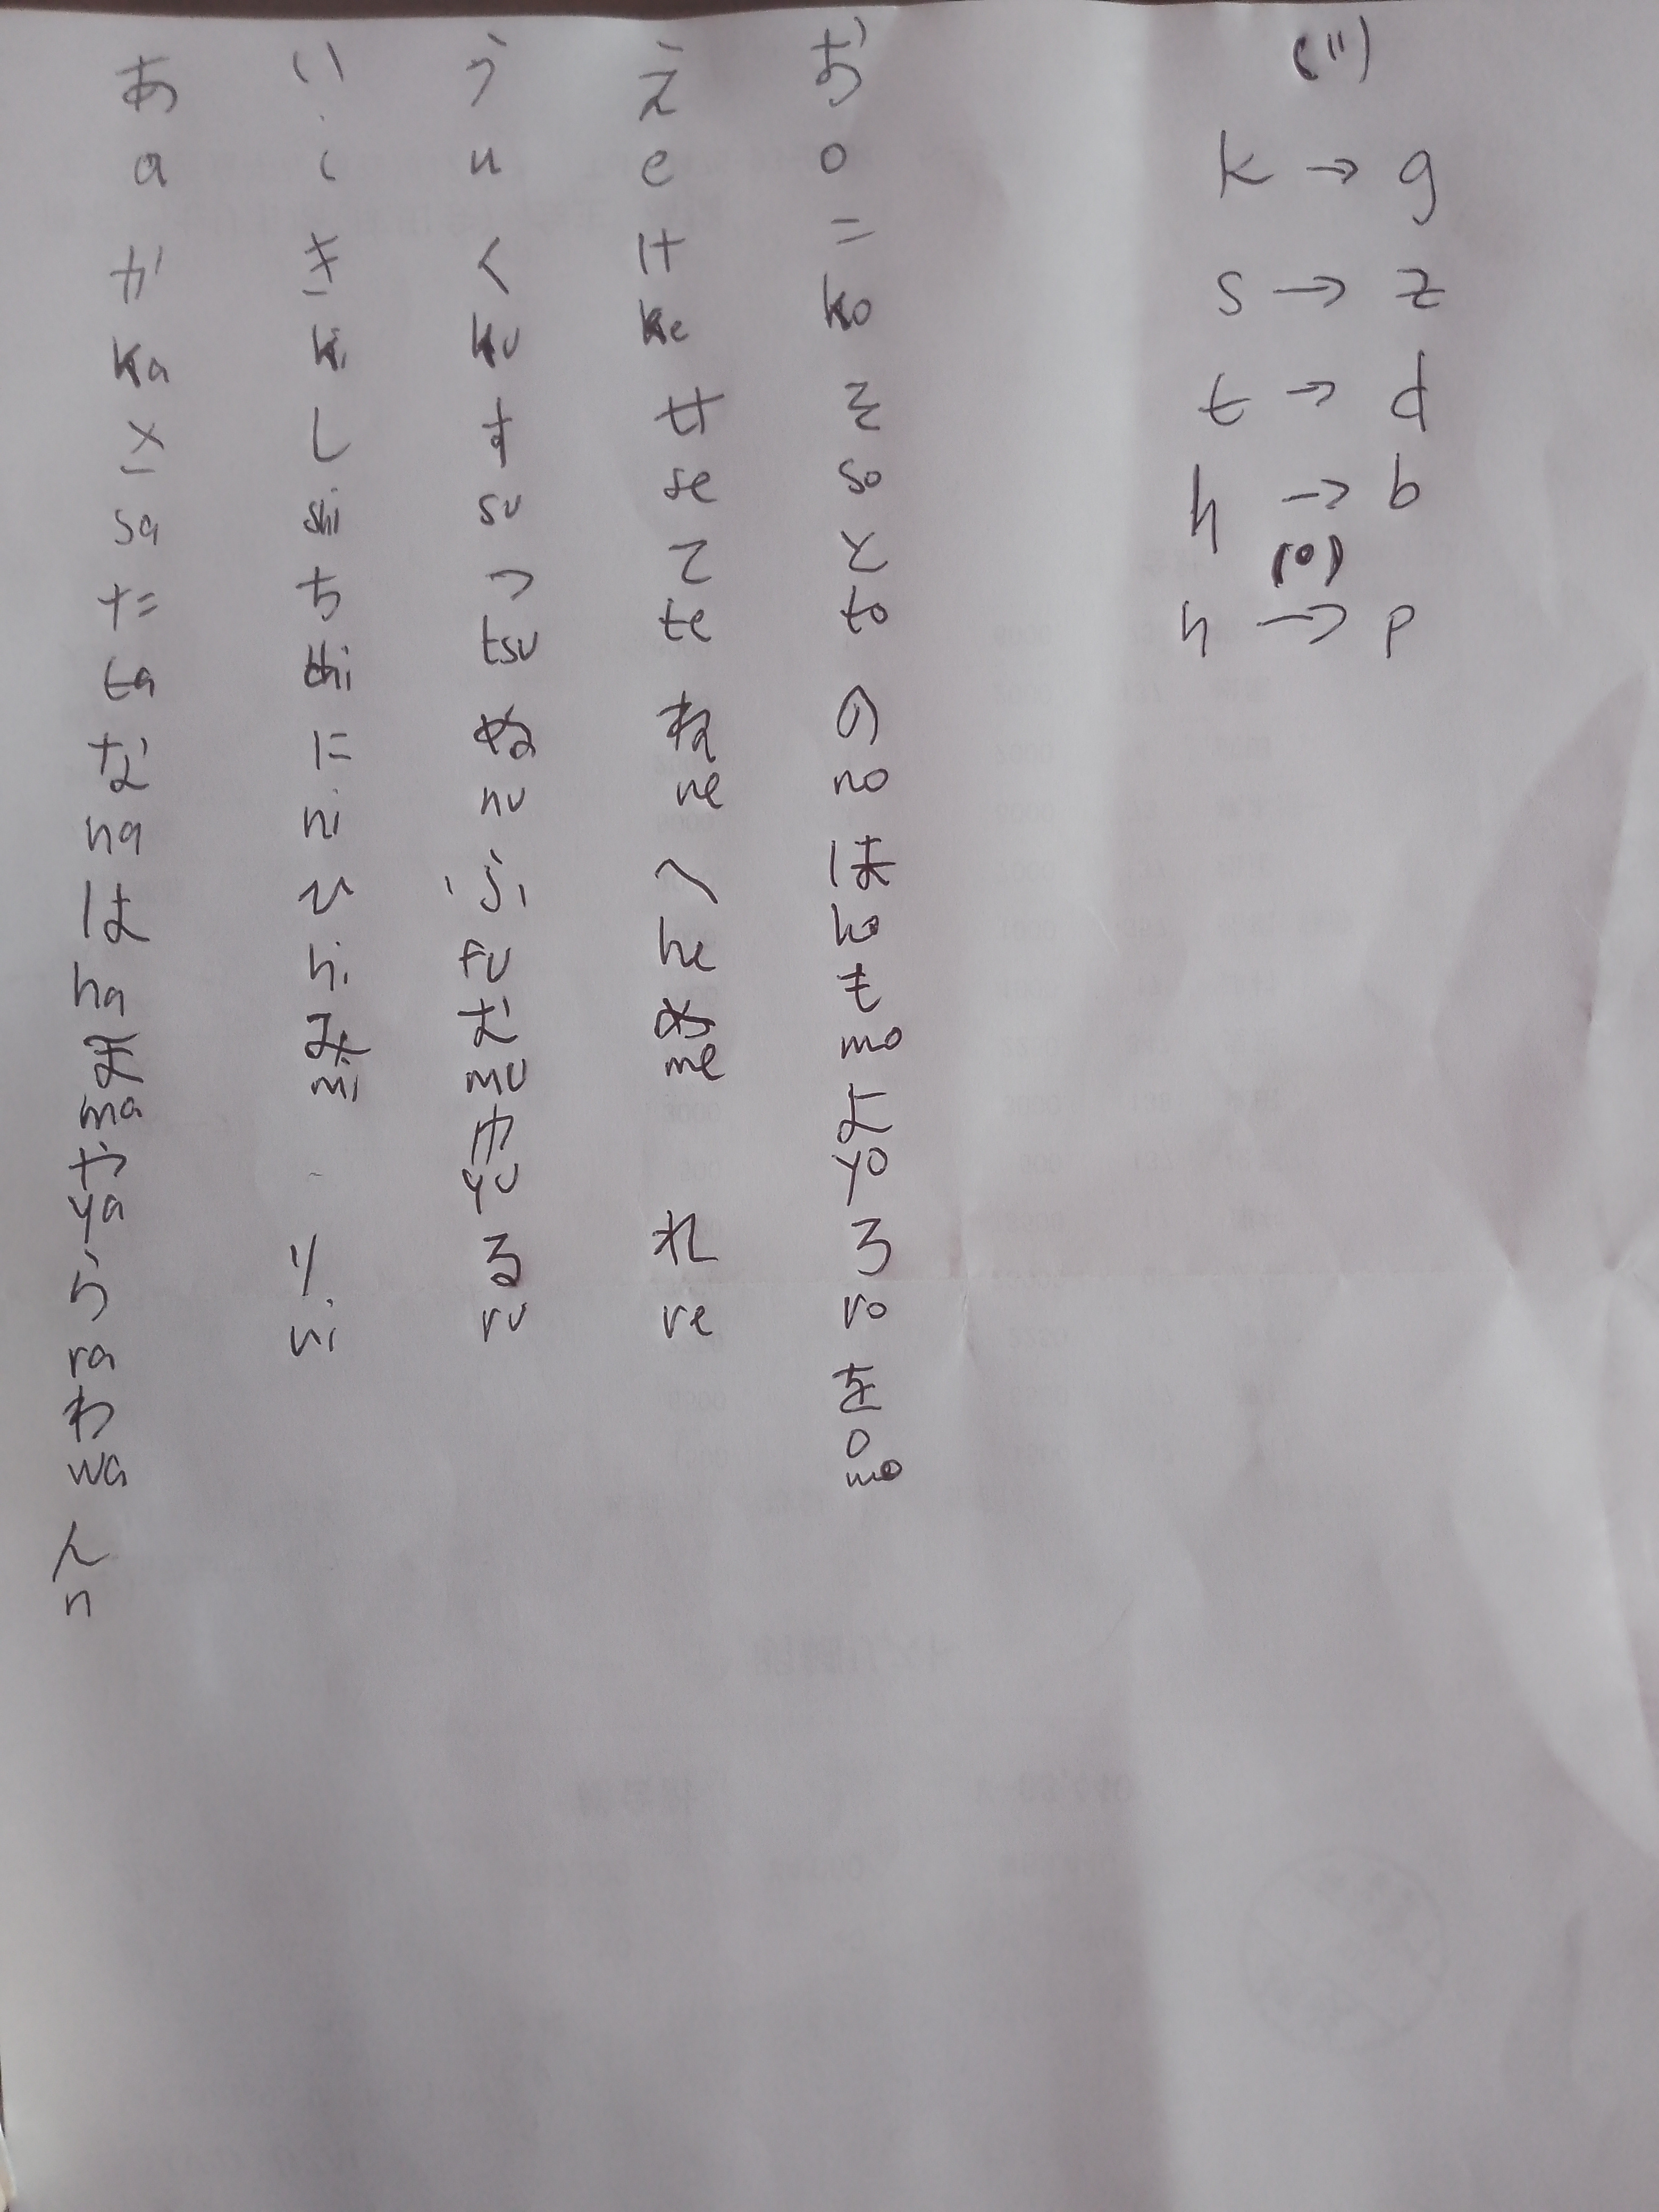 あ い う え お
a i u e o
か き く け こ
ka ki ku ke ko
さ し す せ そ
sa shi su se so
た ち つ て と
ta chi tsu te to
な に ぬ ね の
na ni nu ne no
は ひ ふ へ ほ
ha hi fu he ho
ま み む め も
ma mi mu me mo
や ゆ よ
ya yu yo
ら り る れ ろ
ra ri ru re ro
わ を
wa o
ん
n
(")
k → g
s → z
t → d
h → b
(o)
h → p